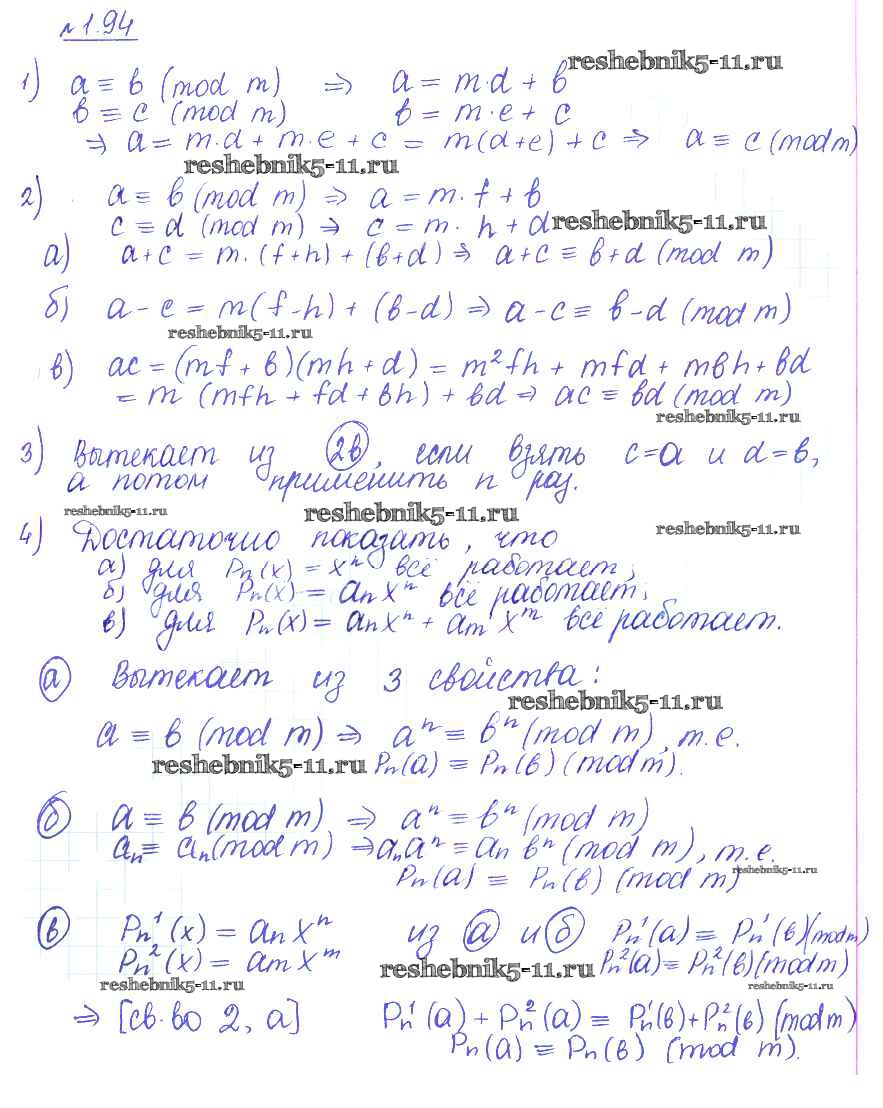 №1.94
1) a ≡ b (mod m) ⇒ a = m·d + b reshebnik5-11.ru
b ≡ c (mod m) b = m·e + c
⇒ a = m·d + m·e + c = m(d+e) + c ⇒ a ≡ c (mod m)
reshebnik5-11.ru
2) a ≡ b (mod m) ⇒ a = m·f + b
c ≡ d (mod m) ⇒ c = m·h + d reshebnik5-11.ru
а) a+c = m·(f+h) + (b+d) ⇒ a+c ≡ b+d (mod m)
б) a-c = m(f-h) + (b-d) ⇒ a-c ≡ b-d (mod m)
reshebnik5-11.ru
в) ac = (mf + b)(mh + d) = m²fh + mfd + mbh + bd
= m (mfh + fd + bh) + bd ⇒ ac ≡ bd (mod m)
reshebnik5-11.ru
3) Вытекает из 2в, если взять c=a и d=b,
а потом применить n раз.
reshebnik5-11.ru reshebnik5-11.ru reshebnik5-11.ru
4) Достаточно показать, что
а) для Pn(x) = xⁿ всё работает;
б) для Pn(x) = anxⁿ всё работает;
в) для Pn(x) = anxⁿ + amxᵐ всё работает.
а Вытекает из 3 свойства:
reshebnik5-11.ru
a ≡ b (mod m) ⇒ aⁿ ≡ bⁿ (mod m), т.е.
reshebnik5-11.ru Pn(a) ≡ Pn(b) (mod m).
б a ≡ b (mod m) ⇒ aⁿ ≡ bⁿ (mod m)
an ≡ an (mod m) ⇒ anaⁿ ≡ an bⁿ (mod m), т.е.
reshebnik5-11.ru
Pn(a) ≡ Pn(b) (mod m)
в Pn¹(x) = anxⁿ из а и б Pn¹(a) ≡ Pn¹(b)(mod m)
Pn²(x) = amxᵐ reshebnik5-11.ru Pn²(a) ≡ Pn²(b)(mod m)
reshebnik5-11.ru reshebnik5-11.ru
⇒ [св-во 2, а] Pn¹(a) + Pn²(a) ≡ Pn¹(b)+Pn²(b) (mod m)
Pn(a) ≡ Pn(b) (mod m).